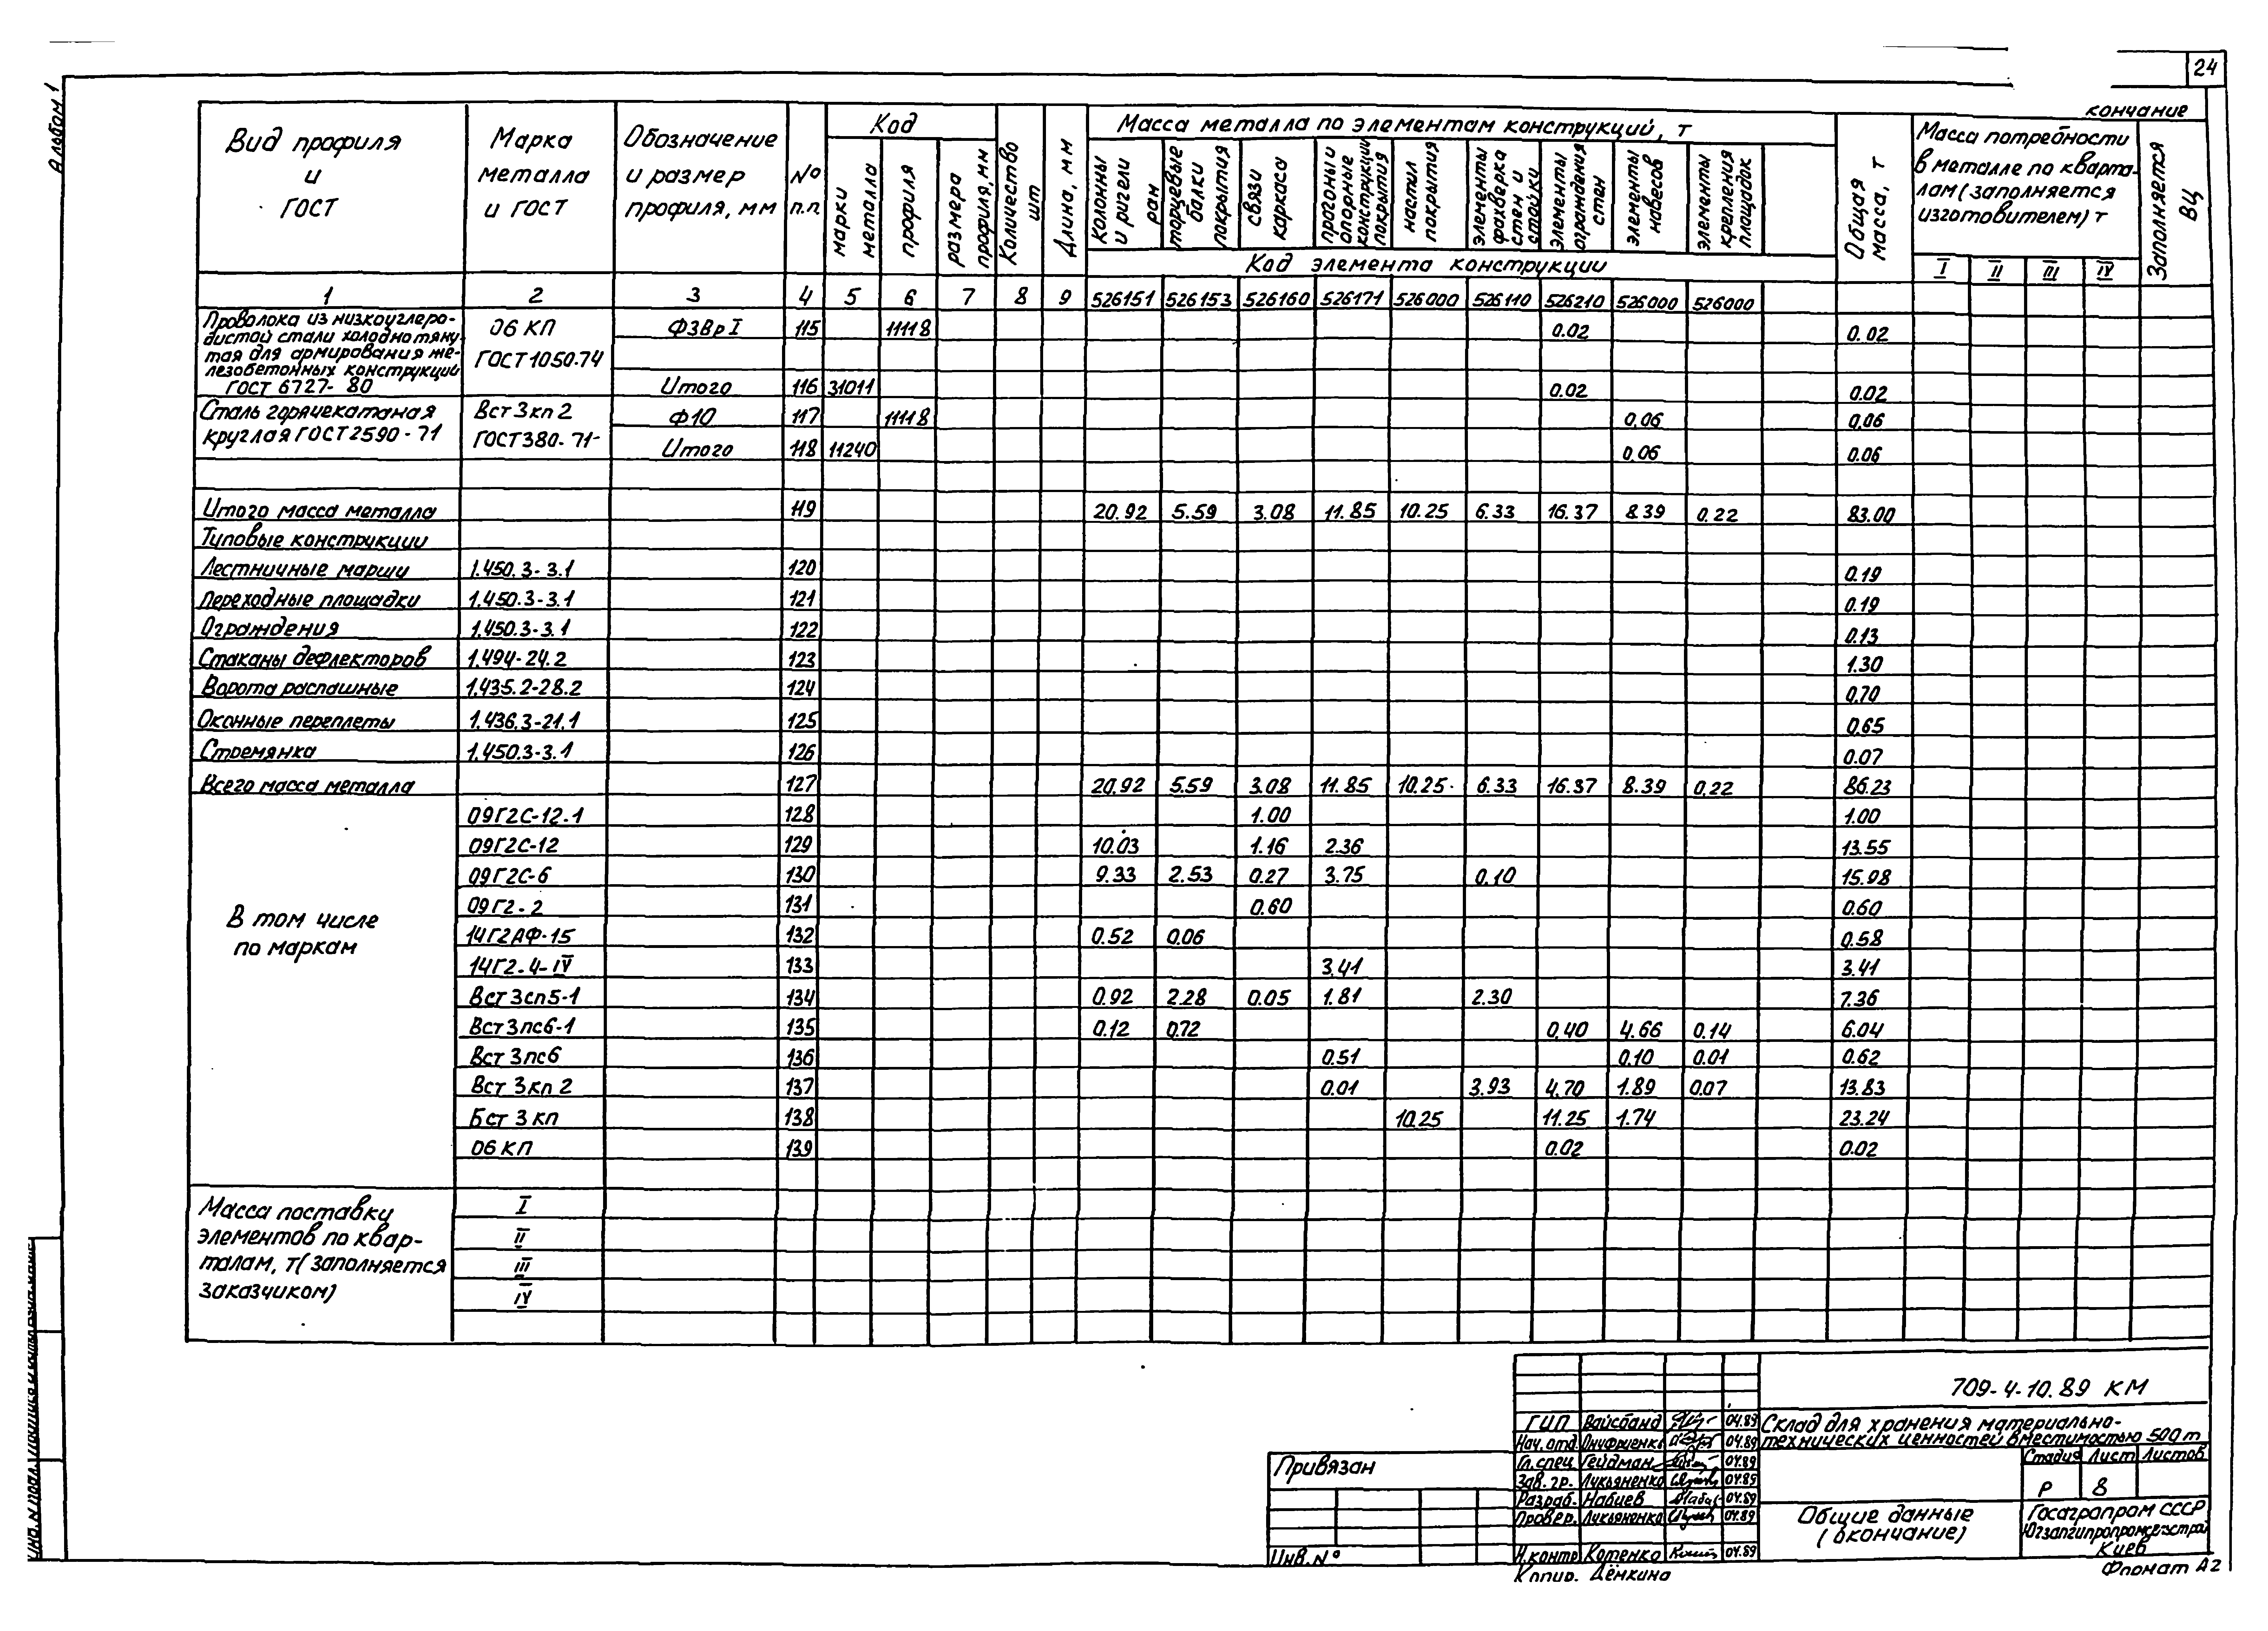 24
Альбом 1
кончание
Вид профиля и ГОСТ
Марка металла и ГОСТ
Обозначение и размер профиля, мм
№ п.п.
Код
марки металла
профиля
размера профиля, мм
Количество шт
Длина, мм
Масса металла по элементам конструкций, т
колонны и ригели рам
торцевые балки покрытия
связи каркаса
прогоны и опорные конструкции покрытия
настил покрытия
элементы фахверка стен и стойки
элементы ограждения стен
элементы навесов
элементы крепления площадок
Код элемента конструкции
Общая масса, т
Масса потребности в металле по кварта-
лам (заполняется изготовителем) т
I II III IV
Заполняется ВЦ
1 2 3 4 5 6 7 8 9 526151 526153 526160 526171 526000 526110 526210 526000 526000
Проволока из низкоуглеро-
дистой стали холоднотяну-
тая для армирования же-
лезобетонных конструкций
ГОСТ 6727-80
06 КП
ГОСТ 1050.74
Ф3Вр I 115 11118 0.02 0.02
Итого 116 31011 0.02 0.02
Сталь горячекатаная
круглая ГОСТ 2590-71
Вст 3кп 2
ГОСТ 380-71-
Ф10 117 11118 0.06 0.06
Итого 118 11240 0.06 0.06
Итого масса металла 119 20.92 5.59 3.08 11.85 10.25 6.33 16.37 8.39 0.22 83.00
Типовые конструкции
Лестничные марши 1.450.3-3.1 120 0.19
Переходные площадки 1.450.3-3.1 121 0.19
Ограждения 1.450.3-3.1 122 0.13
Стаканы дефлекторов 1.494-24.2 123 1.30
Ворота распашные 1.435.2-28.2 124 0.70
Оконные переплеты 1.436.3-21.1 125 0.65
Стремянка 1.450.3-3.1 126 0.07
Всего масса металла 127 20.92 5.59 3.08 11.85 10.25 6.33 16.37 8.39 0.22 86.23
В том числе
по маркам
09Г2С-12.1 128 1.00 1.00
09Г2С-12 129 10.03 1.16 2.36 13.55
09Г2С-6 130 9.33 2.53 0.27 3.75 0.10 15.98
09Г2-2 131 0.60 0.60
14Г2АФ-15 132 0.52 0.06 0.58
14Г2-4-IV 133 3.41 3.41
Вст 3сп5-1 134 0.92 2.28 0.05 1.81 2.30 7.36
Вст 3пс6-1 135 0.12 0.72 0.40 4.66 0.14 6.04
Вст 3пс6 136 0.51 0.10 0.01 0.62
Вст 3кп 2 137 0.01 3.93 4.70 1.89 0.07 13.83
Бст 3 кп 138 10.25 11.25 1.74 23.24
06 КП 139 0.02 0.02
Масса поставки
элементов по квар-
талам, т (заполняется
заказчиком)
I
II
III
IV
709-4-10.89 КМ
ГИП Вайсбанд 04.89
Нач. отд. Онуфриенко 04.89
Гл.спец. Гейдман 04.89
Зав. гр. Лукьяненко 04.89
Разраб. Набиев 04.89
Провер. Лукьяненко 04.89
Н.контр Котенко 04.89
Склад для хранения материально-
технических ценностей вместимостью 500 т
Стадия Лист Листов
Р 8
Общие данные
(окончание)
Госагропром СССР
Киев
Привязан
Инв. №
Копир. Дёнкина
Формат А2